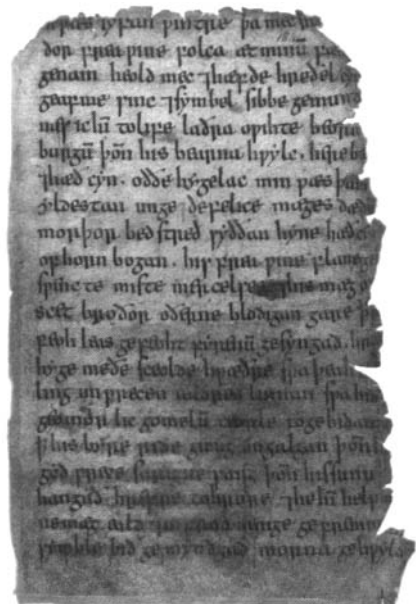 wæs syfan wintre þa mec sin
dor frea wine folca æt minū fæ
genam heold mec ⁊hæfde hreðel
geaf me sinc ⁊symbel sibbe gemun
næs ic hī to life laðra owihte beorn
burgū þōn his bearna hwylc. here be
⁊hæð cyn. oððe hygelac min wæs þā
yldestan unge defelice mæges dæd
morþor bed stred syððan hyne hæð
of horn bogan. his frea wine flane ge
swencte miste mercelses ⁊his mæg
scet broðor oðerne blodigan gare
feoh leas gefeoht fyrenū gesyngad. hre
hyge meðe sceolde hwæðre swa þeah
ling un wrecen ealdres linnan swa bið
geomor lic gomelū ceorle to gebidan
ꝥ his byre ride giong on galgan þōn
gyd wrece sarigne sang þōn his sunu
hangað hrefne to hroðre ⁊he hī help
ne mæg eald ⁊in frod ænige gefrem
symble bið gemyndgad morna gehwylc